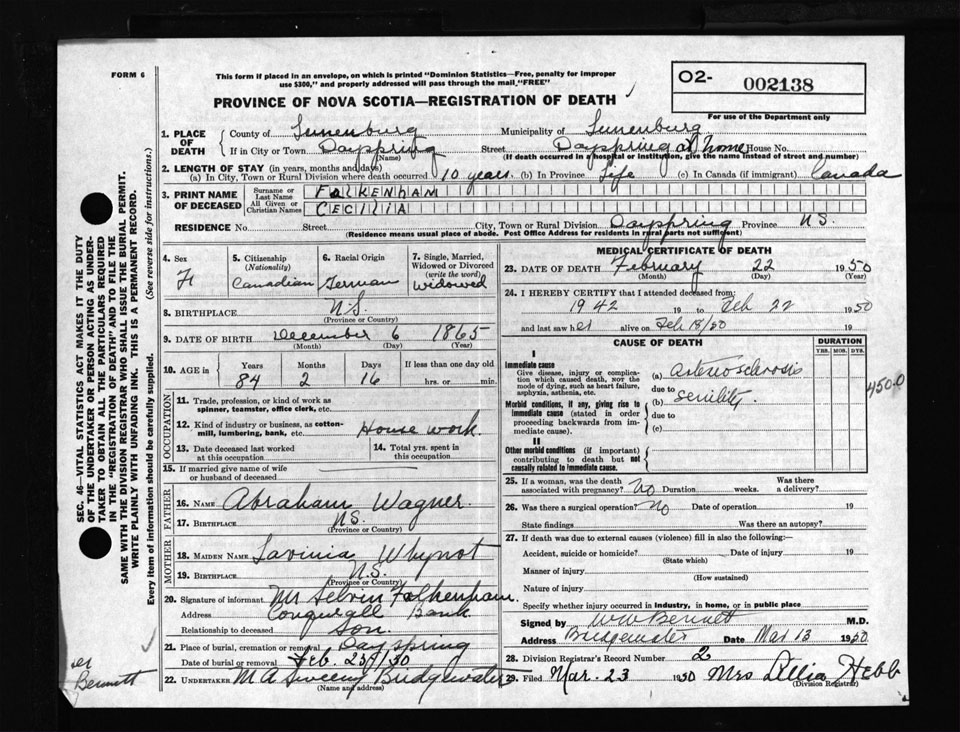 FORM 6
This form if placed in an envelope, on which is printed "Dominion Statistics—Free, penalty for improper
use $300," and properly addressed will pass through the mail "FREE"
O2- 002138
For use of the Department only
PROVINCE OF NOVA SCOTIA—REGISTRATION OF DEATH
1. PLACE OF DEATH
County of Lunenburg Municipality of Lunenburg
If in City or Town Dayspring (Name) Street Dayspring at home House No.
(If death occurred in a hospital or institution, give the name instead of street and number)
2. LENGTH OF STAY (in years, months and days)
(a) In City, Town or Rural Division where death occurred 10 years. (b) In Province Life (c) In Canada (if immigrant) Canada
3. PRINT NAME OF DECEASED
Surname or Last Name FALKENHAM
All Given or Christian Names CECILIA
RESIDENCE No. Street City, Town or Rural Division Dayspring Province N.S.
(Residence means usual place of abode. Post Office Address for residents in rural parts not sufficient)
4. Sex F
5. Citizenship (Nationality) Canadian
6. Racial Origin German
7. Single, Married, Widowed or Divorced (write the word) Widowed
8. BIRTHPLACE N.S.
(Province or Country)
9. DATE OF BIRTH December 6 1865
(Month) (Day) (Year)
10. AGE in Years 84 Months 2 Days 16 If less than one day old hrs. or min.
OCCUPATION
11. Trade, profession, or kind of work as spinner, teamster, office clerk, etc.
12. Kind of industry or business, as cotton-mill, lumbering, bank, etc. House work.
13. Date deceased last worked at this occupation
14. Total yrs. spent in this occupation
15. If married give name of wife or husband of deceased
FATHER
16. NAME Abraham Wagner.
17. BIRTHPLACE N.S.
(Province or Country)
MOTHER
18. MAIDEN NAME Lavinia Whynot
19. BIRTHPLACE N.S.
(Province or Country)
20. Signature of informant Mr Selvin Falkenham.
Address Conquerall Bank
Relationship to deceased Son.
21. Place of burial, cremation or removal Dayspring
Date of burial or removal Feb. 25/50
22. UNDERTAKER M A Sweeny Bridgewater
(Name and address)
MEDICAL CERTIFICATE OF DEATH
23. DATE OF DEATH February 22 1950
(Month) (Day) (Year)
24. I HEREBY CERTIFY that I attended deceased from:
1942 19 to Feb 22 1950
and last saw her alive on Feb 18/50 19
CAUSE OF DEATH
DURATION
YRS. MOS. DYS.
I
Immediate cause
Give disease, injury or complication which caused death, NOT the mode of dying, such as heart failure, asphyxia, asthenia, etc.
(a) arteriosclerosis
due to
(b) senility.
due to
(c)
450.0
Morbid conditions, if any, giving rise to immediate cause (stated in order proceeding backwards from immediate cause).
II
Other morbid conditions (if important) contributing to death but not causally related to immediate cause.
25. If a woman, was the death associated with pregnancy? No Duration weeks. Was there a delivery?
26. Was there a surgical operation? No Date of operation 19
State findings Was there an autopsy?
27. If death was due to external causes (violence) fill in also the following:—
Accident, suicide or homicide? Date of injury 19
(State which)
Manner of injury
(How sustained)
Nature of injury
Specify whether injury occurred in industry, in home, or in public place
Signed by W W Bennett M.D.
Address Bridgewater Date Mar 13 1950
28. Division Registrar's Record Number 2
29. Filed Mar. 23 1950 Mrs Hebb
(Division Registrar)
SEC. 46—VITAL STATISTICS ACT MAKES IT THE DUTY
OF THE UNDERTAKER OR PERSON ACTING AS UNDER-
TAKER TO OBTAIN ALL THE PARTICULARS REQUIRED
IN THE "REGISTRATION OF DEATH" AND TO FILE THE
SAME WITH THE DIVISION REGISTRAR WHO SHALL ISSUE THE BURIAL PERMIT.
WRITE PLAINLY WITH UNFADING INK. THIS IS A PERMANENT RECORD.
Every item of information should be carefully supplied. (See reverse side for instructions.)
Bennett